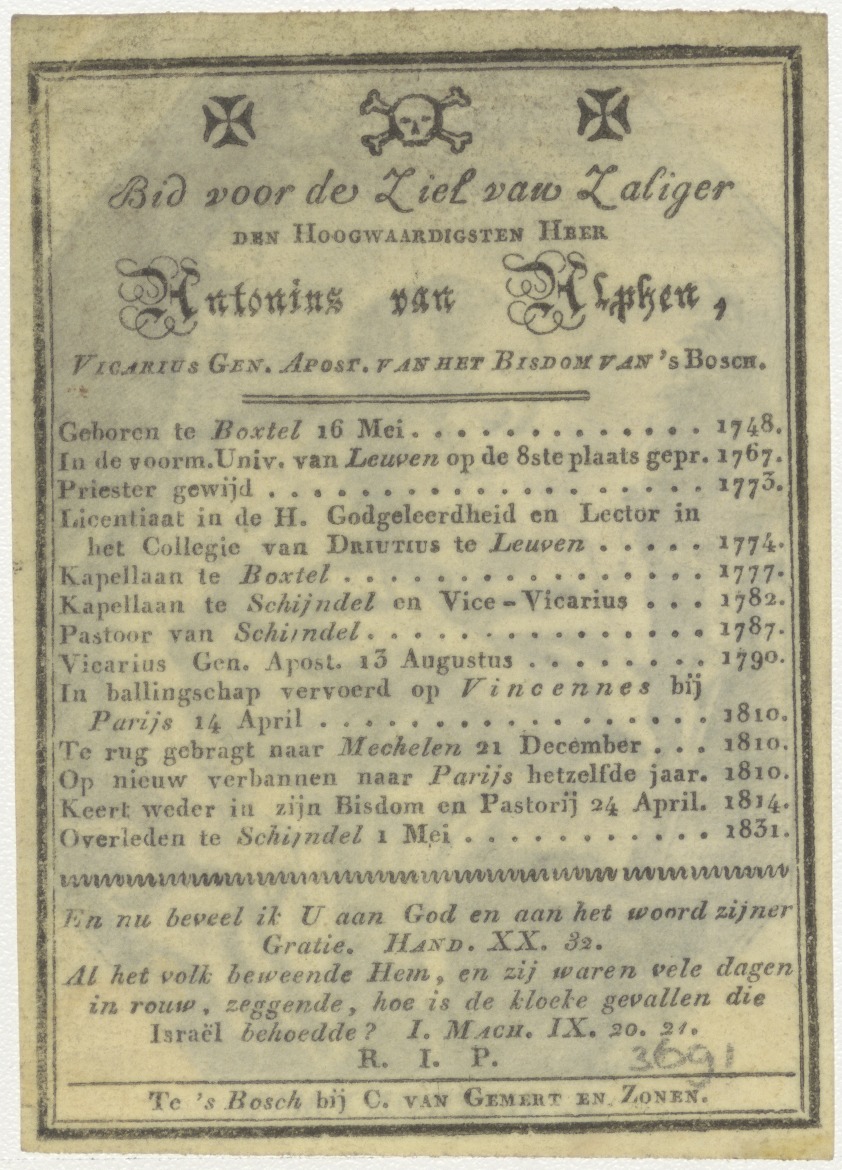 Bid voor de Ziel van Zaliger
DEN HOOGWAARDIGSTEN HEER
Antonius van Alphen,
VICARIUS GEN. APOST. VAN HET BISDOM VAN 's BOSCH.
Geboren te Boxtel 16 Mei. . . . . . . . . . . . . 1748.
In de voorm. Univ. van Leuven op de 8ste plaats gepr. 1767.
Priester gewijd . . . . . . . . . . . . . . . . . . 1773.
Licentiaat in de H. Godgeleerdheid en Lector in
het Collegie van DRIUTIUS te Leuven . . . . . 1774.
Kapellaan te Boxtel . . . . . . . . . . . . . . . 1777.
Kapellaan te Schijndel en Vice-Vicarius . . . 1782.
Pastoor van Schijndel. . . . . . . . . . . . . . 1787.
Vicarius Gen. Apost. 13 Augustus . . . . . . . . 1790.
In ballingschap vervoerd op Vincennes bij
Parijs 14 April . . . . . . . . . . . . . . . . . 1810.
Te rug gebragt naar Mechelen 21 December . . . 1810.
Op nieuw verbannen naar Parijs hetzelfde jaar. 1810.
Keert weder in zijn Bisdom en Pastorij 24 April. 1814.
Overleden te Schijndel 1 Mei . . . . . . . . . . . 1831.
En nu beveel ik U aan God en aan het woord zijner
Gratie. HAND. XX. 32.
Al het volk beweende Hem, en zij waren vele dagen
in rouw, zeggende, hoe is de kloeke gevallen die
Israël behoedde? I. MACH. IX. 20. 21.
R. I. P.
3691
Te 's Bosch bij C. VAN GEMERT EN ZONEN.